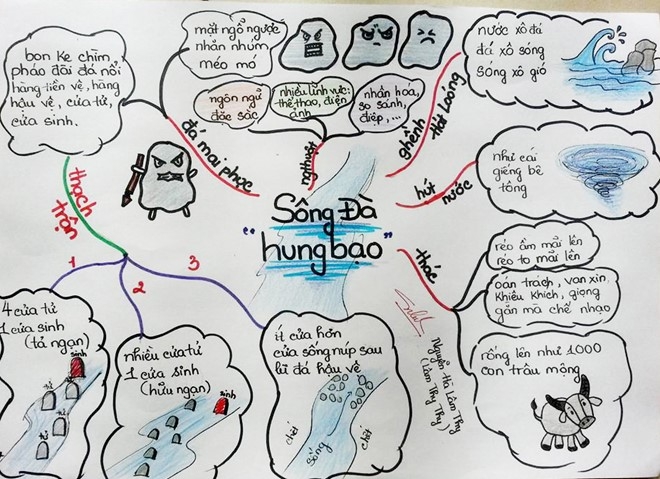 bon ke chìm
pháo đài đá nổi
hàng tiền vệ, hàng
hậu vệ, cửa tử,
cửa sinh.
mặt ngỗ ngược
nhăn nhúm
méo mó
ngôn ngữ
đặc sắc
nhiều lĩnh vực:
thể thao, điện
ảnh
nhân hoá,
so sánh,
điệp,...
nước xô đá
đá xô sóng
sóng xô gió
đá mai phục
nghthuật
ghềnh
Hát Loóng
hút
nước
như cái
giếng bê
tông
Sông Đà
"hung bạo"
thạch
trận
1
2
3
thác
réo ầm mãi lên
réo to mãi lên
oán trách, van xin,
khiêu khích, giọng
gằn mà chế nhạo
rống lên như 1000
con trâu mộng
4 cửa tử
1 cửa sinh
(tả ngạn)
sinh
tử
tử
tử
tử
nhiều cửa tử
1 cửa sinh
(hữu ngạn)
sinh
ít cửa hơn
cửa sống núp sau
lũ đá hậu vệ
chết
sống
chết
Nguyễn Hà Lâm Thy
(Lâm Thy Thy)